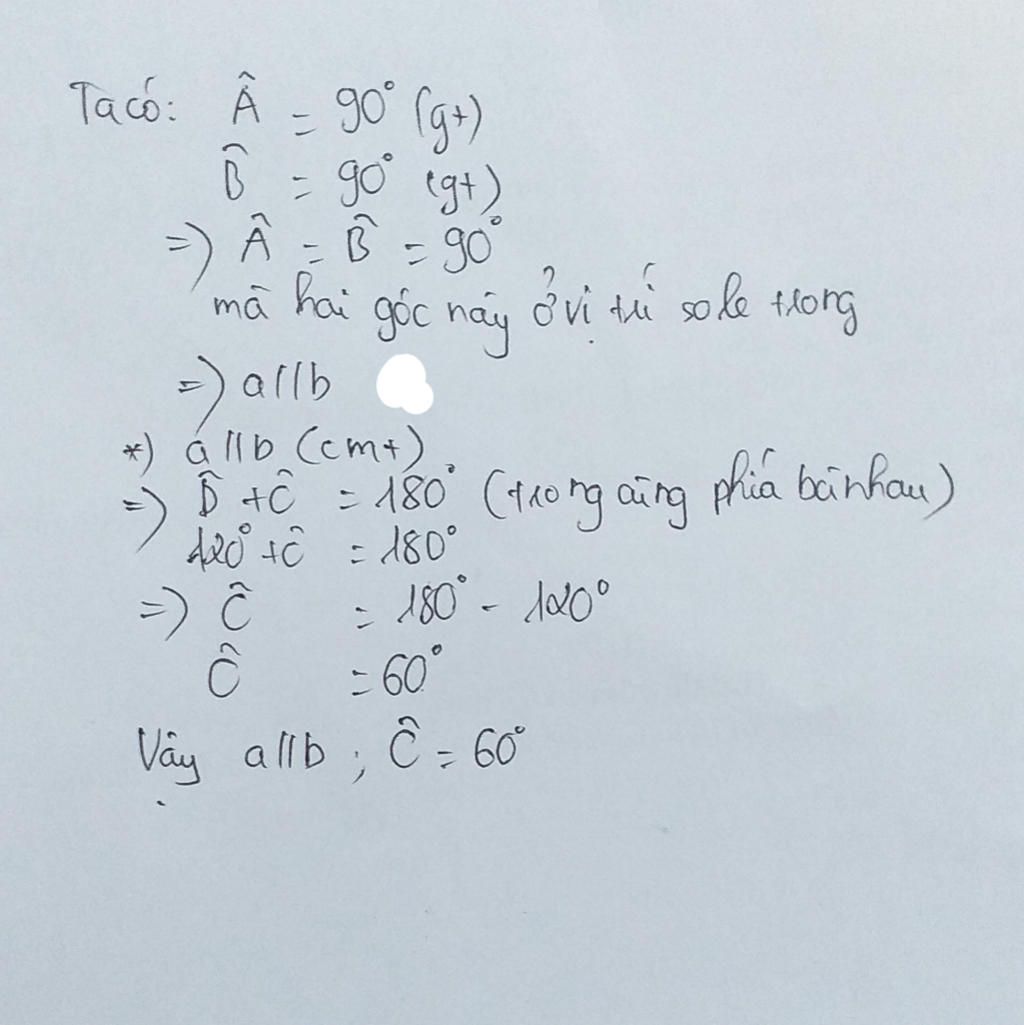 Ta có: Â = 90° (gt)
B̂ = 90° (gt)
=) Â = B̂ = 90°
mà hai góc này ở vị trí so le trong
=) a//b
*) a//b (cmt)
=) D̂ + Ĉ = 180° (trong cùng phía bù nhau)
120° + Ĉ = 180°
=) Ĉ = 180° - 120°
Ĉ = 60°
Vậy a//b ; Ĉ = 60°